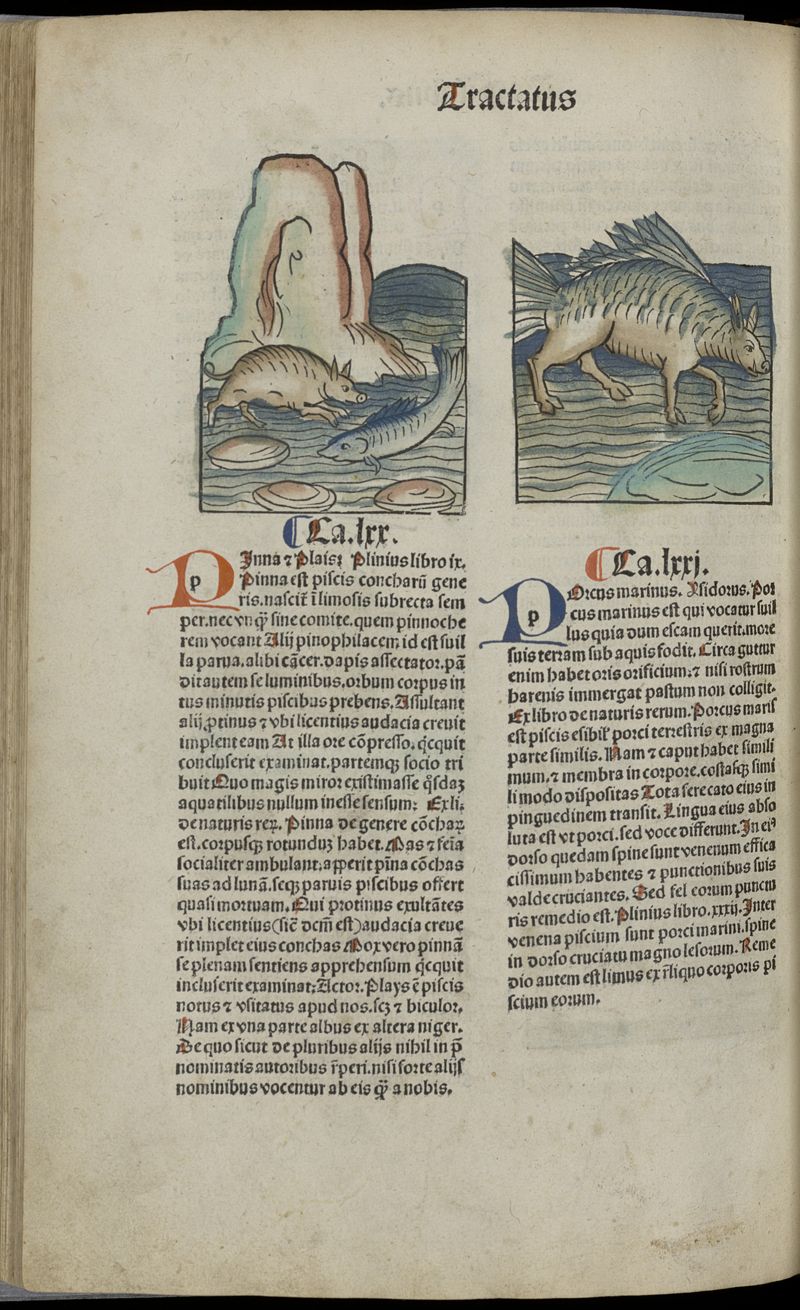 Tractatus
Ca.lxx.
p
PInna ⁊ Plais; Plinius libro ix.
Pinna est piscis concharū gene
ris.nascit̄ ī limosis subrecta sem
per.nec vnq̄ sine comite.quem pinnoche
rem vocant Alij pinophilacem, id est suil
la parua.alibi cācer.dapis assectator.pā
dit autem se luminibus.orbum corpus in
tus minutis piscibus prebens. Assultant
alij ꝓtinus ⁊ vbi licentius audacia creuit
implent eam At illa ore cōpresso.qͥcquit
concluserit examinat.partemqꝫ socio tri
buit Quo magis miror existimasse qͦsdaꝫ
aquatilibus nullum inesse sensum: Ex li.
de naturis reꝝ. Pinna de genere cōchaꝝ
est.corpusqꝫ rotunduꝫ habet. Mas ⁊ fēia
socialiter ambulant.apperit pīna cōchas
suas ad lunā.seqꝫ paruis piscibus offert
quasi mortuam. Qui protinus exultātes
vbi licentius(sic̄ dc̄m est)audacia creue
rit implet eius conchas Mox vero pinnā
se plenam sentiens apprehensum qͥcquit
incluserit examinat: Actor. Plays ē piscis
notus ⁊ vsitatus apud nos.scꝫ ⁊ bicolor.
Nam ex vna parte albus ex altera niger.
De quo sicut de pluribus alijs nihil in p̄
nominatis autoribus r̄peri.nisi forte alijs
nominibus vocentur ab eis q̄ a nobis.
Ca.lxxj.
p
POrcus marinus. Ysidorus. Por
cus marinus est qui vocatur suil
lus quia dum escam querit.more
suis terram sub aquis fodit. Circa guttur
enim habet oris orificium.⁊ nisi rostrum
harenis immergat pastum non colligit.
Ex libro de naturis rerum. Porcus maris
est piscis esibilˀ porci terrestris ex magna
parte similis. Nam ⁊ caput habet simili
mum.⁊ membra in corpore.costasqꝫ simi
li modo dispositas Tota fere cato eius in
pinguedinem transit. Lingua eius abso
luta est vt porci.sed voce differunt. In eiꝰ
dorso quedam spine sunt venenum effica
cissimum habentes ⁊ punctionibus suis
valde cruciantes. Sed fel eorum punctu
ris remedio est. Plinius libro.xxxij. Inter
venena piscium sunt porci marini.spine
in dorso cruciatu magno lesorum. Reme
dio autem est limus ex r̄liquo corporis pi
scium eorum.